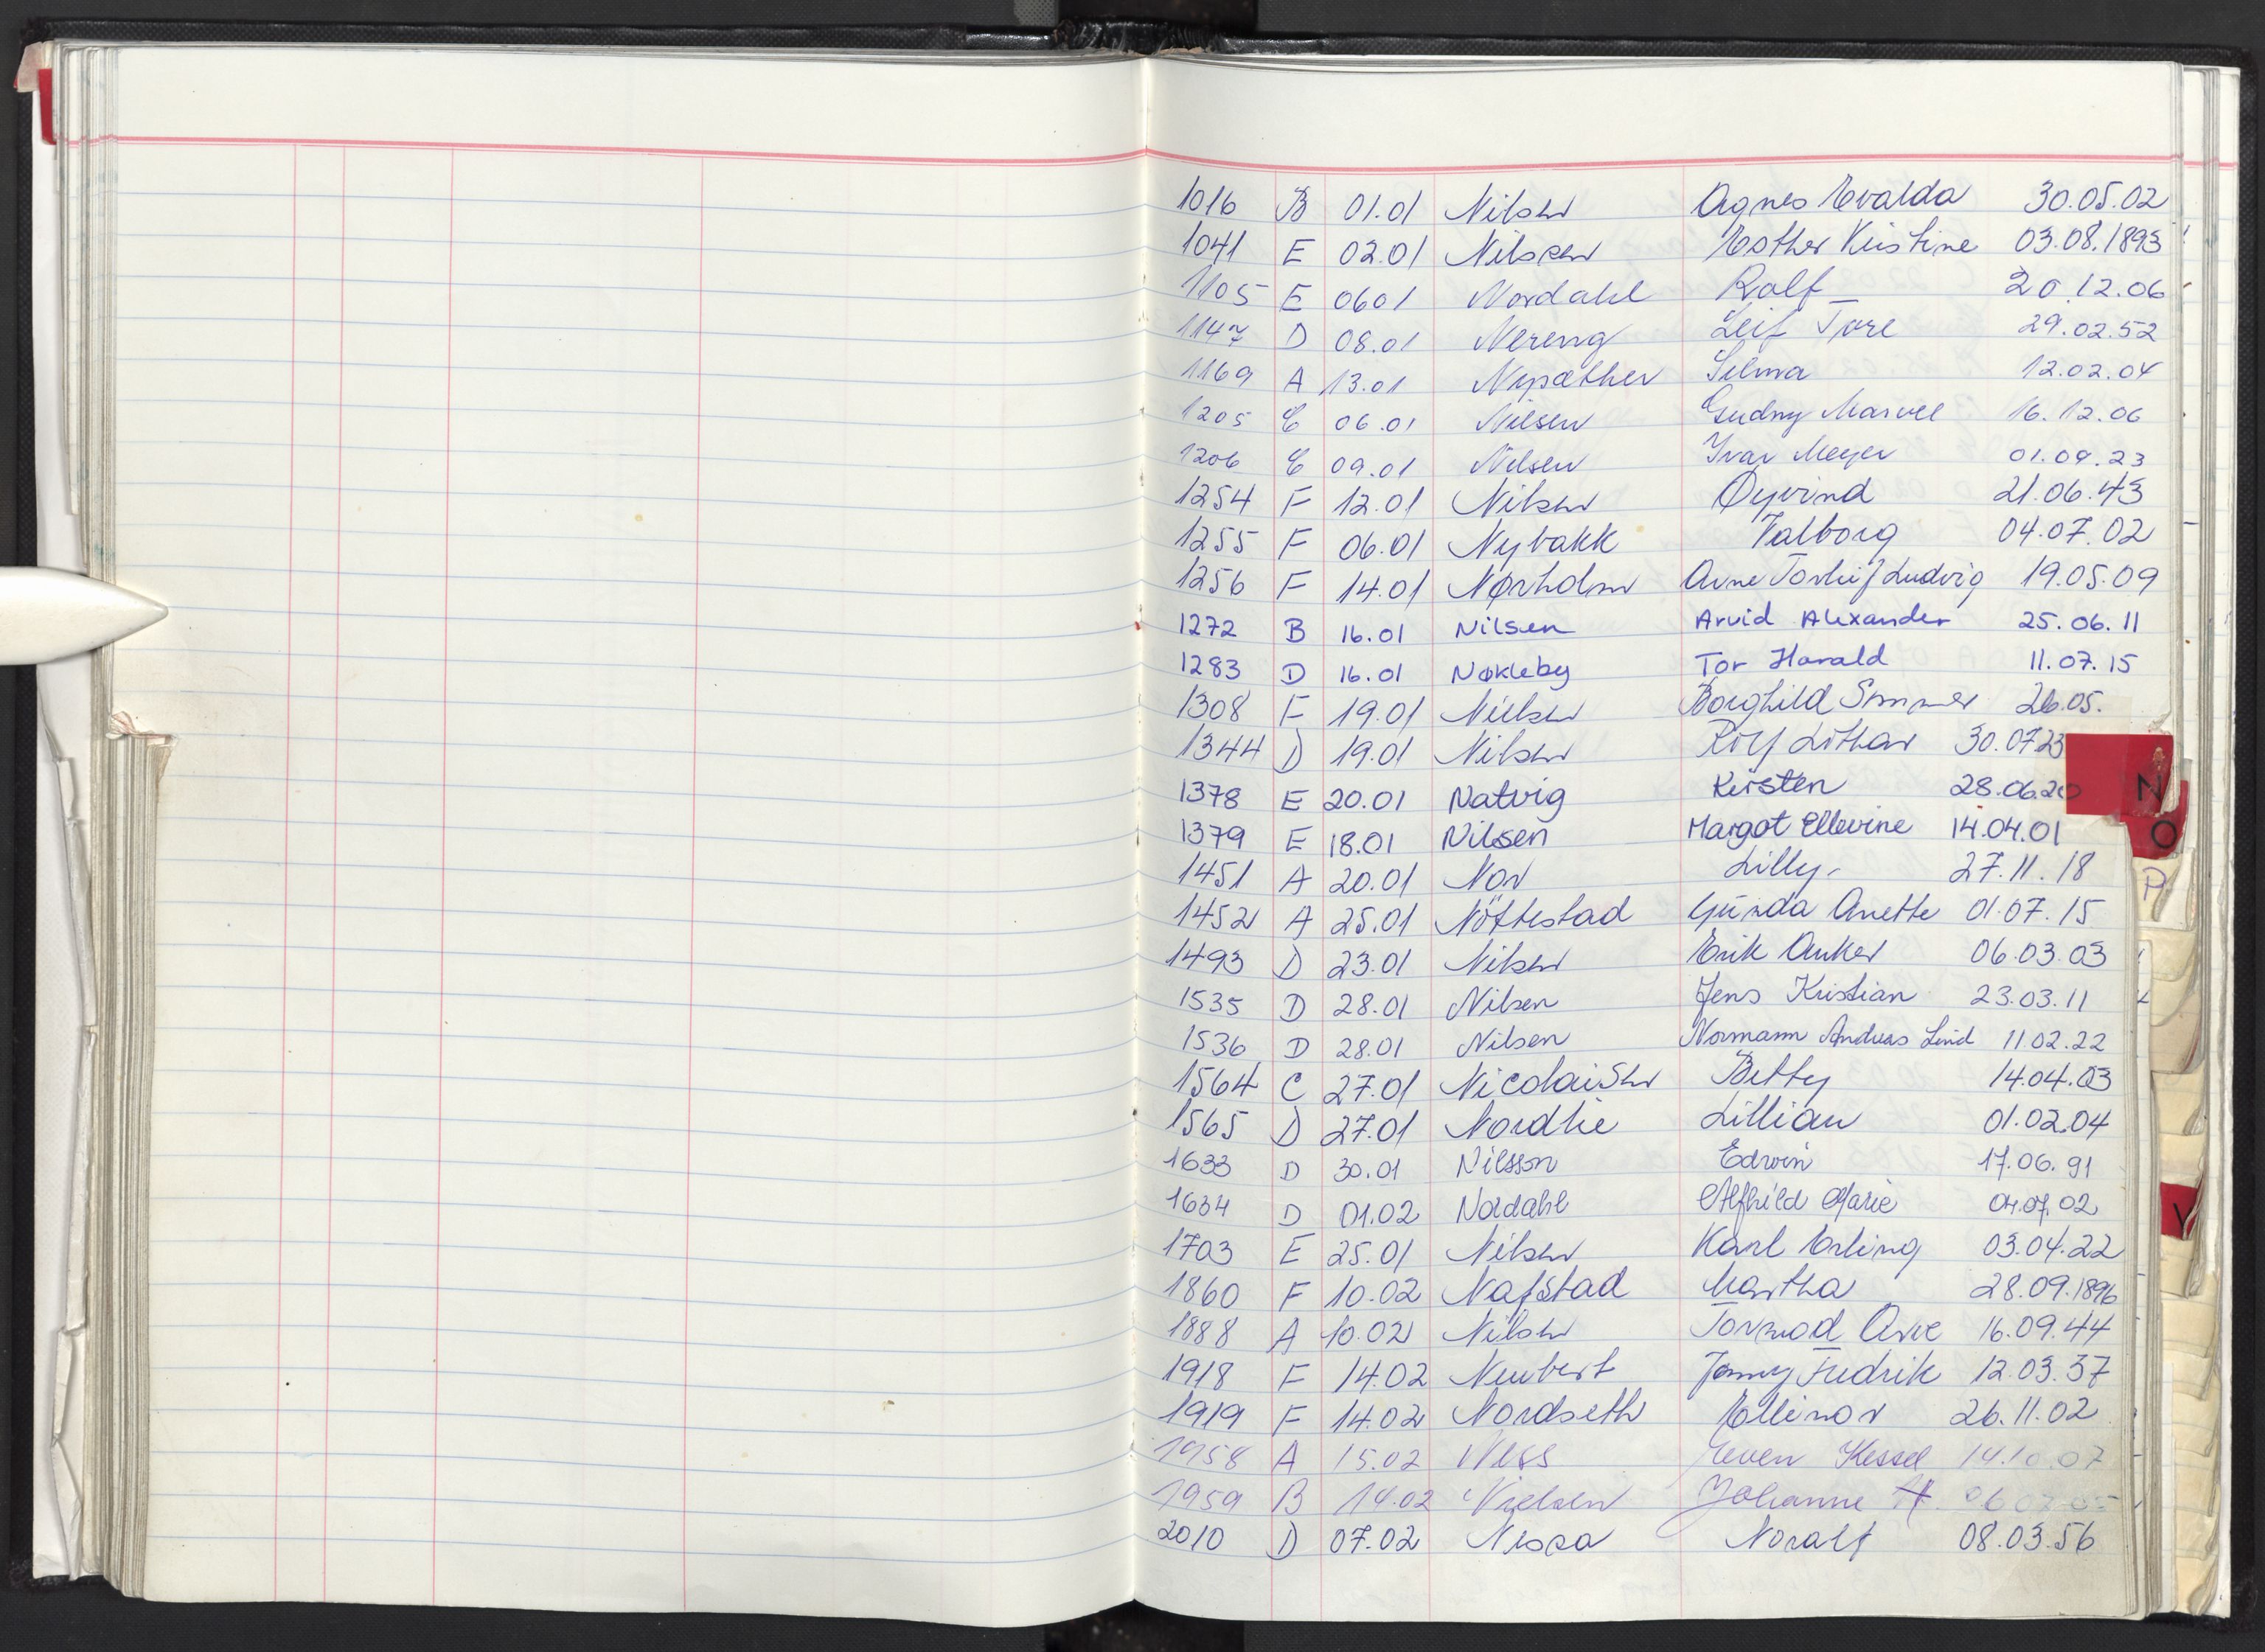 1016 B 01.01 Nilsen Agnes Evalda 30.05.02
1041 E 02.01 Nilssen Esther Kristine 03.08.1893
1105 E 0601 Nordahl Rolf 20.12.06
1147 D 08.01 Nereng Leif Tore 29.02.52
1169 A 13.01 Nypæther Selma 12.02.04
1205 C 06.01 Nilsen Gudny Marvel 16.12.06
1206 C 09.01 Nilsen Ivar Meyer 01.09.23
1254 F 12.01 Nilsen Øyvind 21.06.43
1255 F 06.01 Nybakk Valborg 04.07.02
1256 F 14.01 Nørholm Arne Torleif Ludvig 19.05.09
1272 B 16.01 Nilsen Arvid Alexander 25.06.11
1283 D 16.01 Nøkleby Tor Harald 11.07.15
1308 F 19.01 Nielsen Borghild 26.05.
1344 D 19.01 Nilsen Rolf Lothar 30.07.23
1378 E 20.01 Natvig Kirsten 28.06.20
1379 E 18.01 Nilsen Margot Ellevine 14.04.01
1451 A 20.01 Nor Lilly 27.11.18
1452 A 25.01 Nöttestad Gunda Anette 01.07.15
1493 D 23.01 Nilsen Erik Anker 06.03.03
1535 D 28.01 Nilsen Jens Kristian 23.03.11
1536 D 28.01 Nilsen Normann Andreas Lind 11.02.22
1564 C 27.01 Nicolaisen Betty 14.04.03
1565 D 27.01 Nordlie Lillian 01.02.04
1633 D 30.01 Nilsson Edwin 17.06.91
1634 D 01.02 Nordahl Alfhild Marie 04.07.02
1703 E 25.01 Nilsen Karl Erling 03.04.22
1860 F 10.02 Nafstad Martha 28.09.1896
1888 A 10.02 Nilsen Tormod Arve 16.09.44
1918 F 14.02 Neubert Jonny Fredrik 12.03.37
1919 F 14.02 Nordseth Ellinor 26.11.02
1958 A 15.02 Ness Even Kessel 14.10.07
1959 B 14.02 Nielsen Johanne 06.07.05
2010 D 07.02 Noralf 08.03.56
N
O
P
V